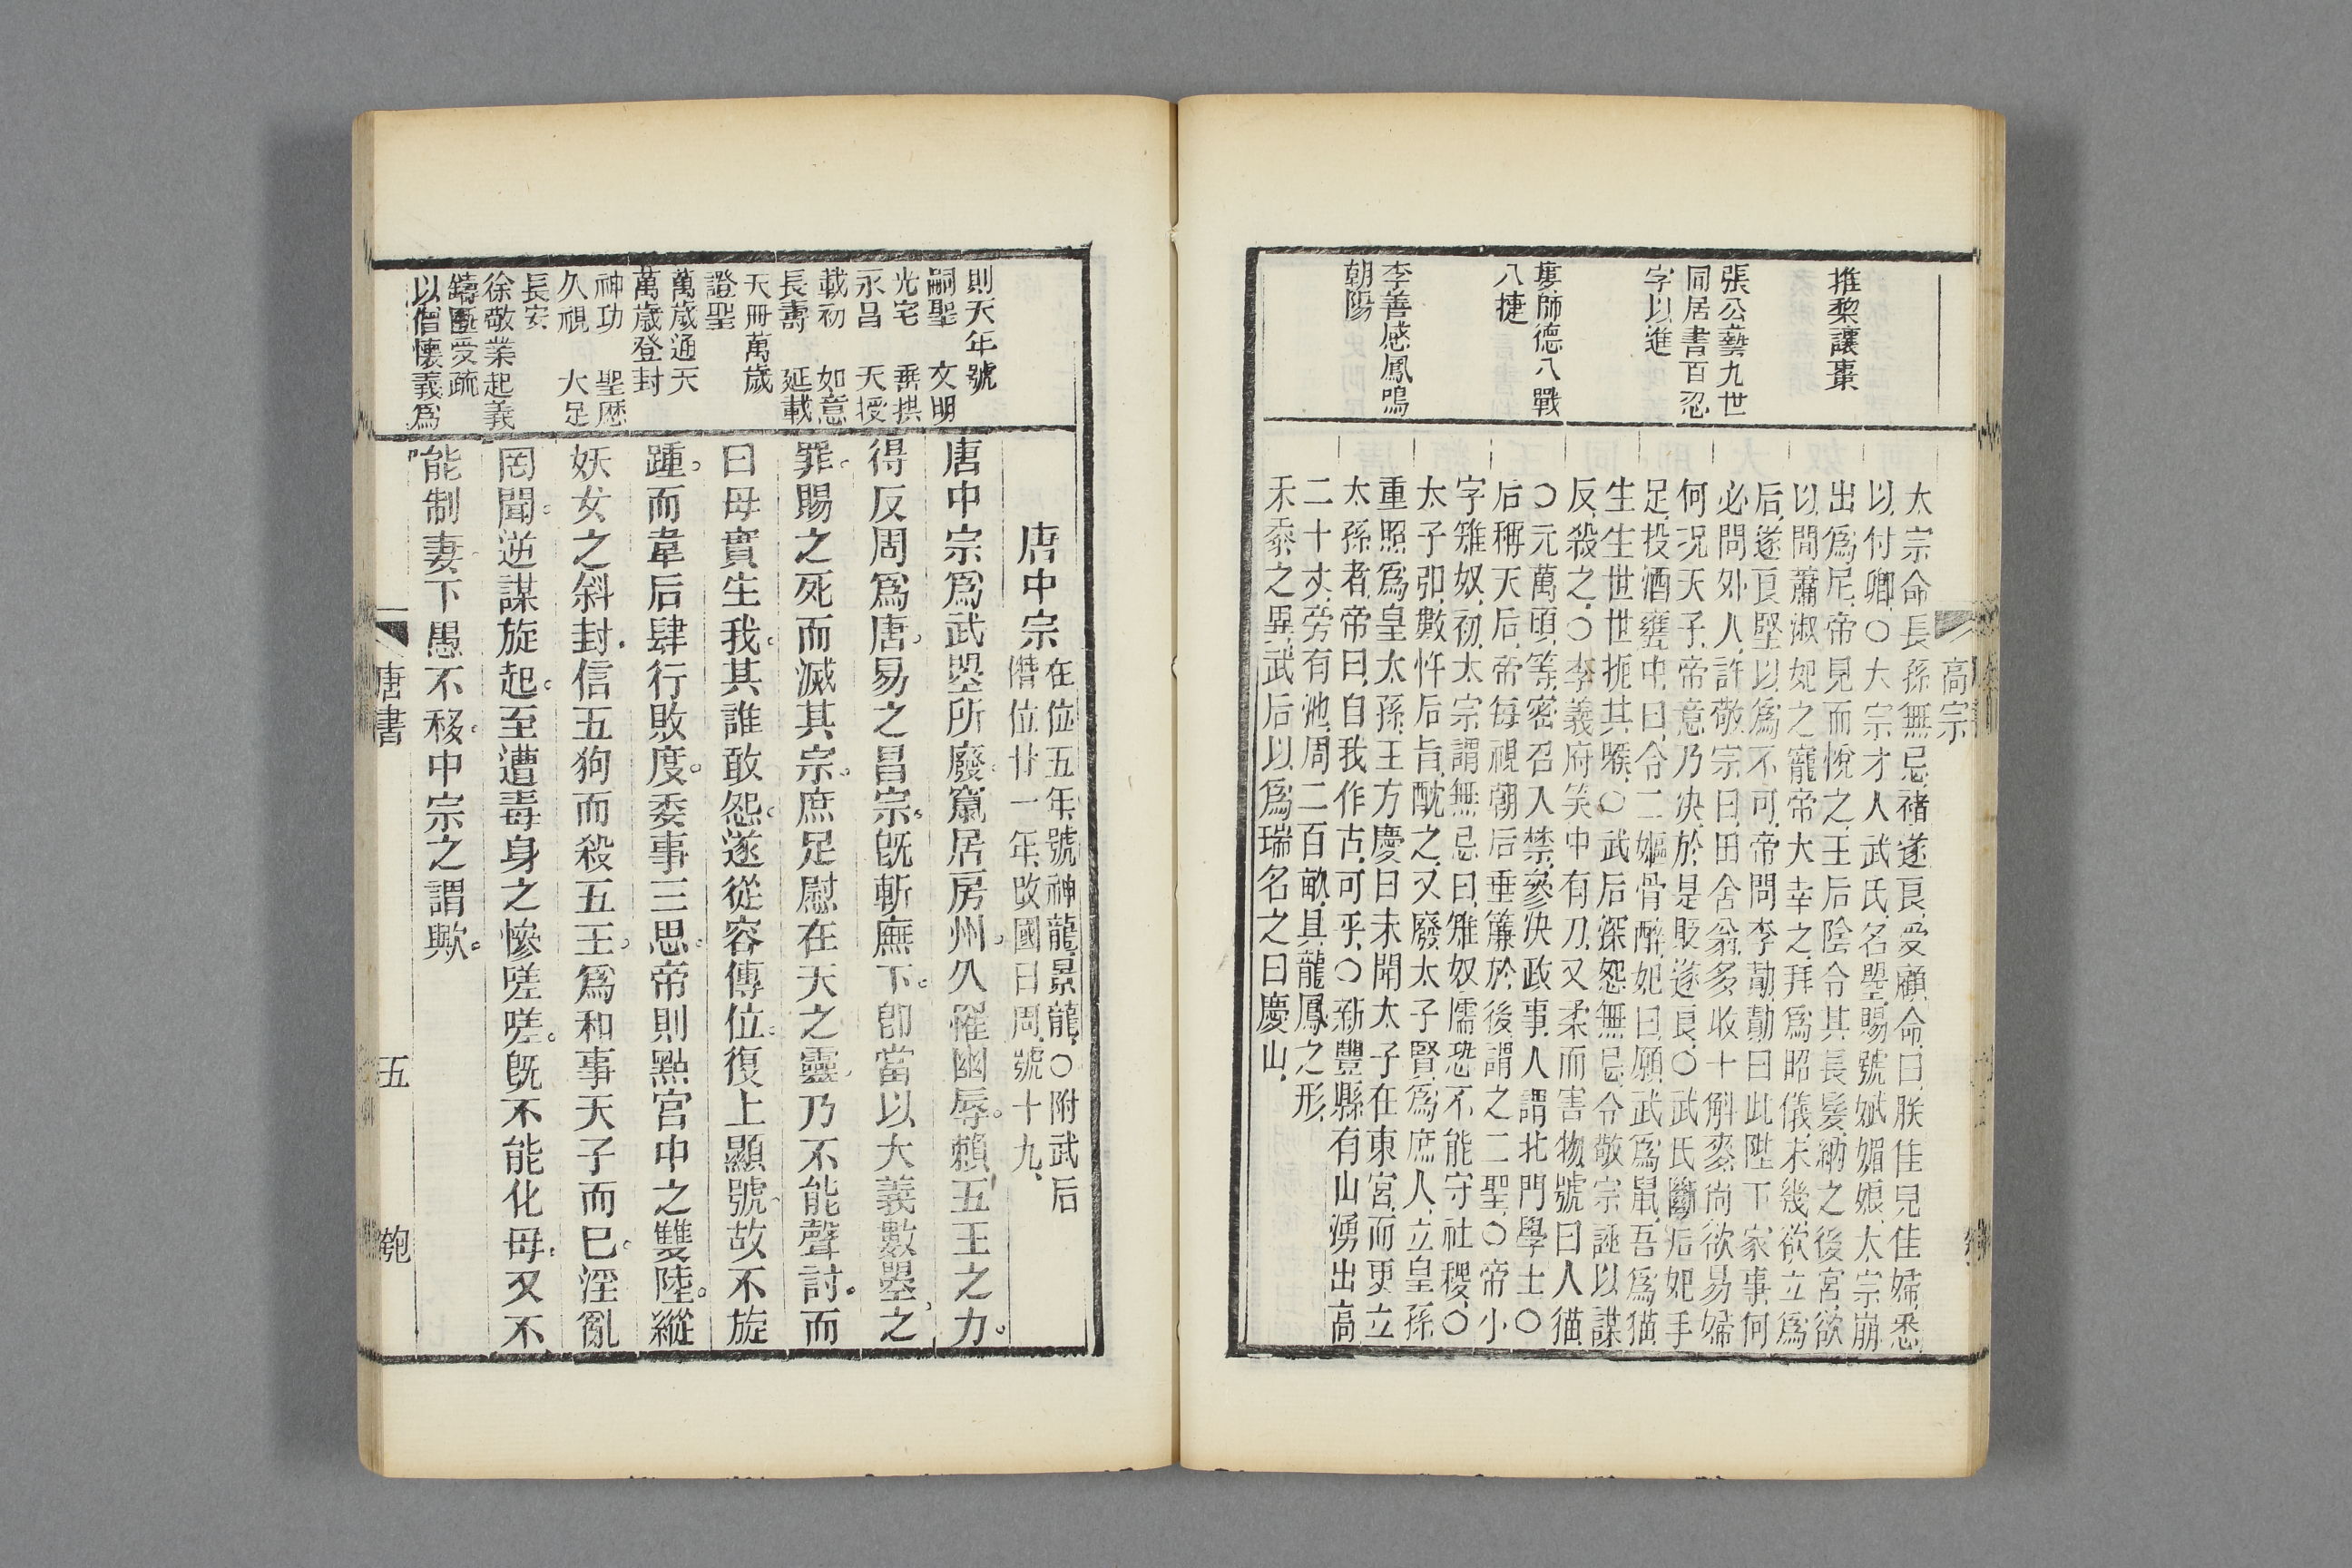 推棃讓棗
張公藝九世
同居書百忍
字以進
婁師德八戰
八捷
李善感鳳鳴
朝陽
高宗
太宗命長孫無忌褚遂良受顧命曰朕佳兒佳婦悉
以付卿○太宗才人武氏名曌賜號娬媚娘太宗崩
出爲尼帝見而悅之王后陰令其長髮納之後宮欲
以間蕭淑妃之寵帝大幸之拜爲昭儀未幾欲立爲
后遂良堅以爲不可帝問李勣勣曰此陛下家事何
必問外人許敬宗曰田舍翁多收十斛麥尚欲易婦
何况天子帝意乃决於是貶遂良○武氏斷后妃手
足投酒甕中曰令二嫗骨醉妃曰願武爲鼠吾爲猫
生生世世扼其喉○武后深怨無忌令敬宗誣以謀
反殺之○李義府笑中有刀又柔而害物號曰人猫
○元萬頃等密召入禁參决政事人謂北門學士○
后稱天后帝每視朝后垂簾於後謂之二聖○帝小
字雉奴初太宗謂無忌曰雉奴懦恐不能守社稷○
太子弘數忤后旨酖之又廢太子賢爲庶人立皇孫
重照爲皇太孫王方慶曰未聞太子在東宮而更立
太孫者帝曰自我作古可乎○新豐縣有山湧出高
二十丈旁有池周二百畝具龍鳳之形
禾黍之異武后以爲瑞名之曰慶山
則天年號
嗣聖 文明
光宅 垂拱
永昌 天授
載初 如意
長壽 延載
天冊萬歲
證聖
萬歲通天
萬歲登封
神功 聖歷
久視 大足
長安
徐敬業起義
鑄匭受疏
以僧懷義爲
唐中宗
在位五年號神龍景龍○附武后
僭位廿一年改國曰周號十九
唐中宗爲武曌所廢竄居房州久罹幽辱賴五王之力
得反周爲唐易之昌宗旣斬廡下卽當以大義數曌之
罪賜之死而滅其宗庶足慰在天之靈乃不能聲討而
曰母實生我其誰敢怨遂從容傳位復上顯號故不旋
踵而韋后肆行敗度委事三思帝則點宮中之雙陸縱
妖女之斜封信五狗而殺五王爲和事天子而已淫亂
罔聞逆謀旋起至遭毒身之慘嗟嗟旣不能化母又不
能制妻下愚不移中宗之謂歟
唐書
五